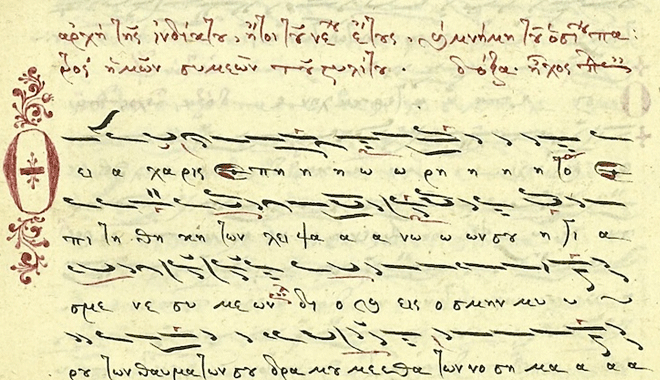 ἀρχὴ τῆς ἰνδίκτου, ἤτοι τοῦ νέου ἔτους, καὶ μνήμη τοῦ ὁσίου πα:
τρὸς ἡμῶν συμεὼν τοῦ στυλίτου. δόξα ἦχος πλ
Θ ει α χαρις ε πη η η ω ω ρη η η η το ε
πι τη θη κη των λει ψα α α α νω ω ων σου η γι α
σμε νε συ με ων δι ο και εις ο σμην μυ υ υ
ρου των θαυμα των σου δρα μου με εθα των νο ση μα α α α